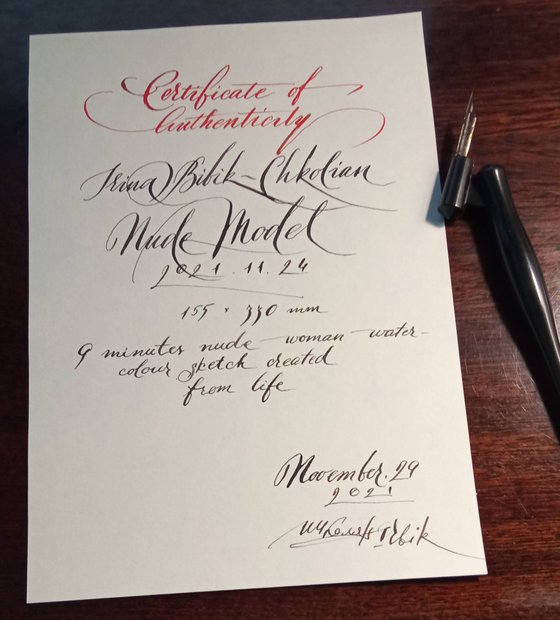 Certificate of
Authenticity
Irina Bibik-Chkolian
Nude Model
2021.11.24
155 × 330 mm
9 minutes nude woman water-
colour sketch created
from life
November.29
2021